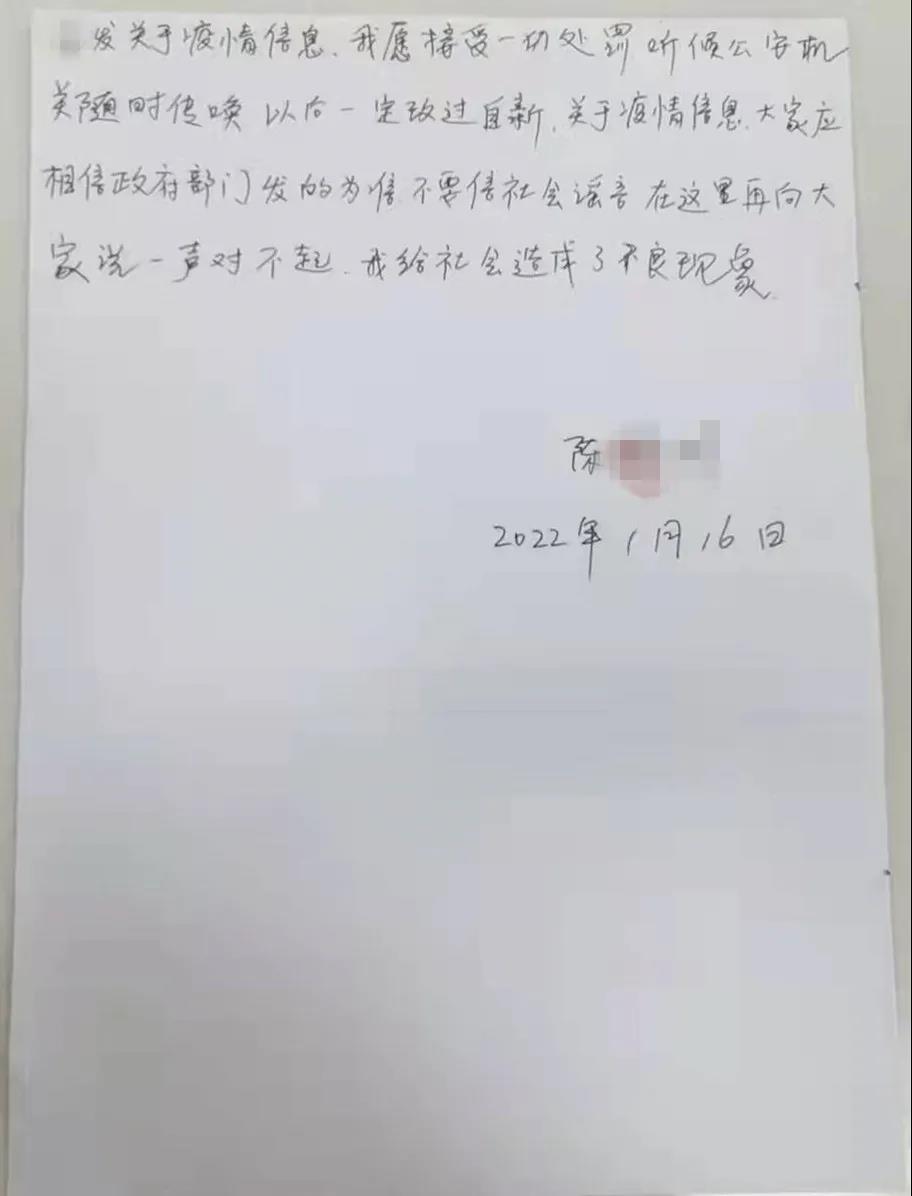 发关于疫情信息、我愿接受一切处罚 听候公安机
关随时传唤 以后一定改过自新、关于疫情信息、大家应
相信政府部门发的为信 不要信社会谣言 在这里再向大
家说一声对不起、我给社会造成了不良现象、
陈
2022年1月16日